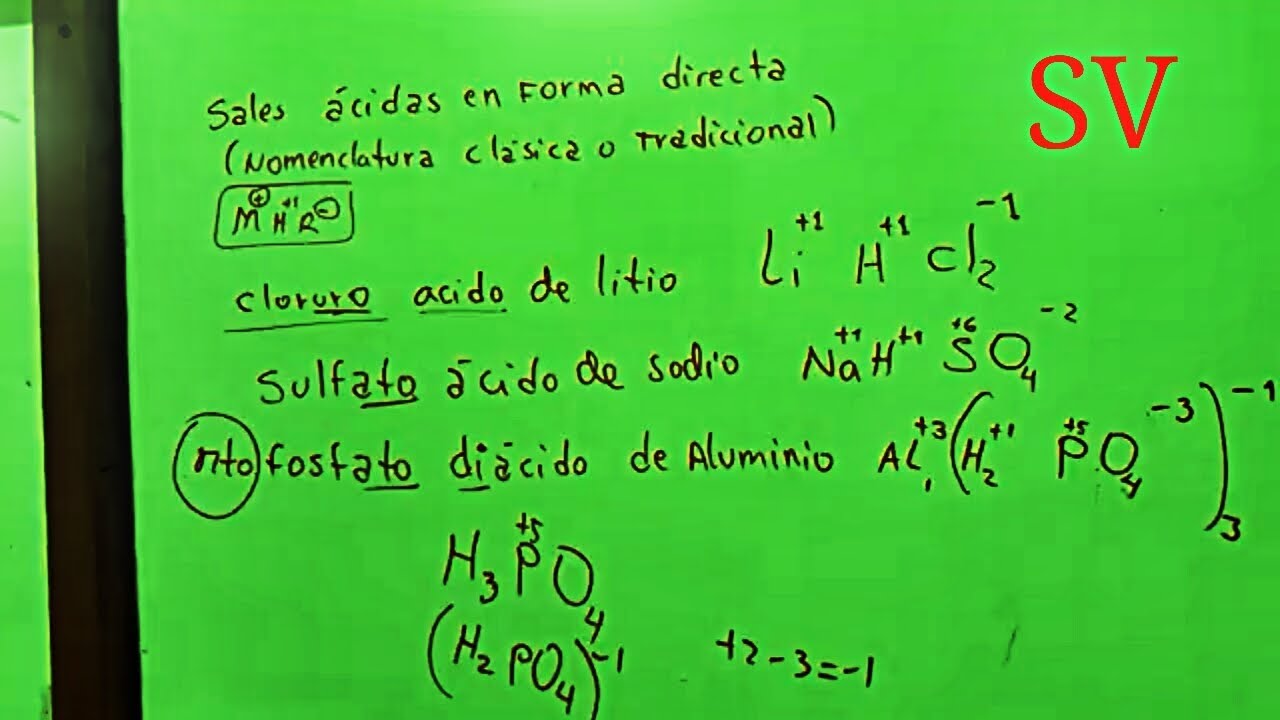 SV
Sales ácidas en Forma directa
(Nomenclatura clásica o Tradicional)
M⊕ H+1 R⊖
cloruro acido de litio Li+1 H+1 Cl2-1
Sulfato ácido de sodio Na+1 H+1 S+6 O4-2
orto fosfato diácido de Aluminio Al1+3 (H2+1 P+5 O4-3)3-1
H3 P+5 O4
(H2 PO4)-1 +2-3=-1